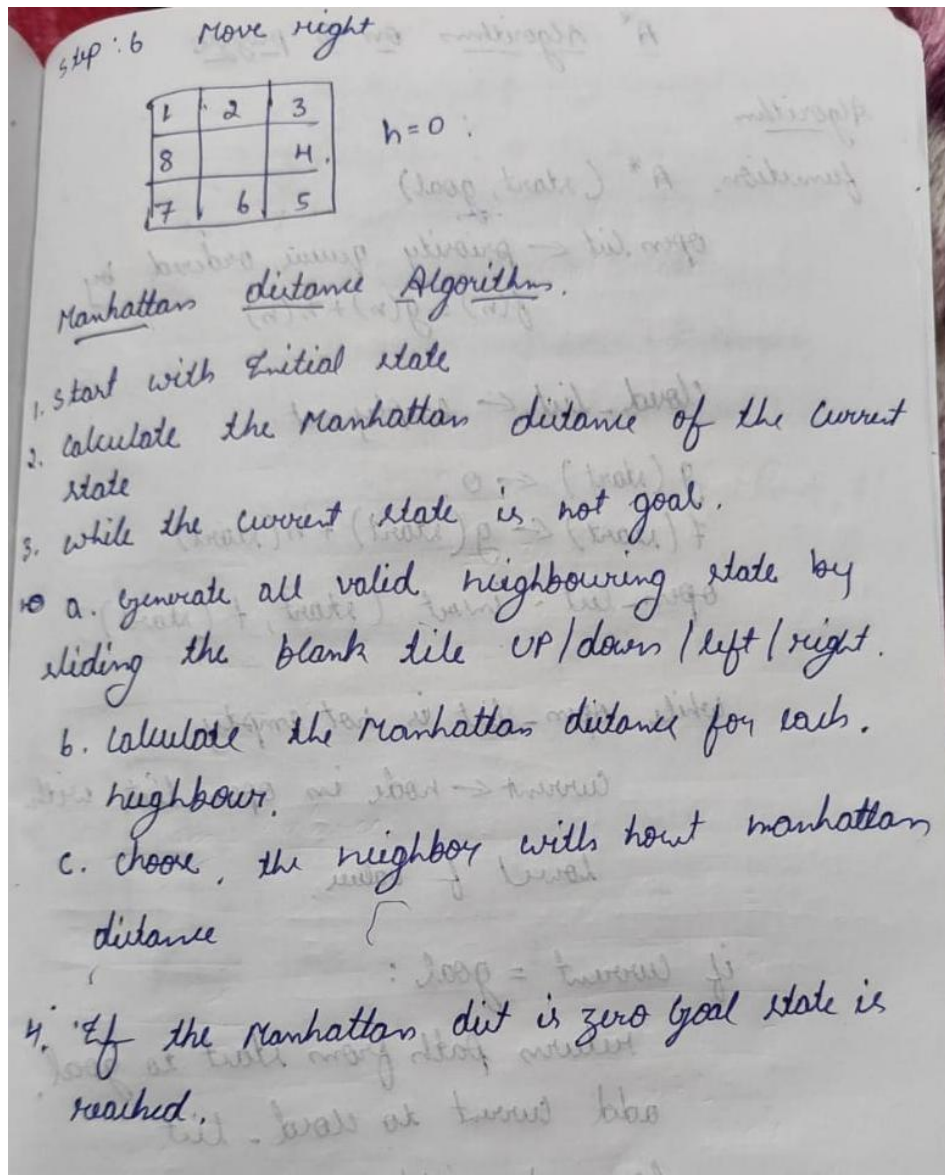 step : 6 Move right
1 2 3
8 4
7 6 5
h = 0 :
Manhattan distance Algorithm.
1. start with Initial state
2. calculate the Manhattan distance of the current
state
3. while the current state is not goal.
a. Generate all valid neighbouring state by
sliding the blank tile UP/down/left/right.
b. calculate the Manhattan distance for each.
neighbour.
c. choose, the neighbor with manhattan
distance
4. If the Manhattan dist is zero Goal state is
reached.